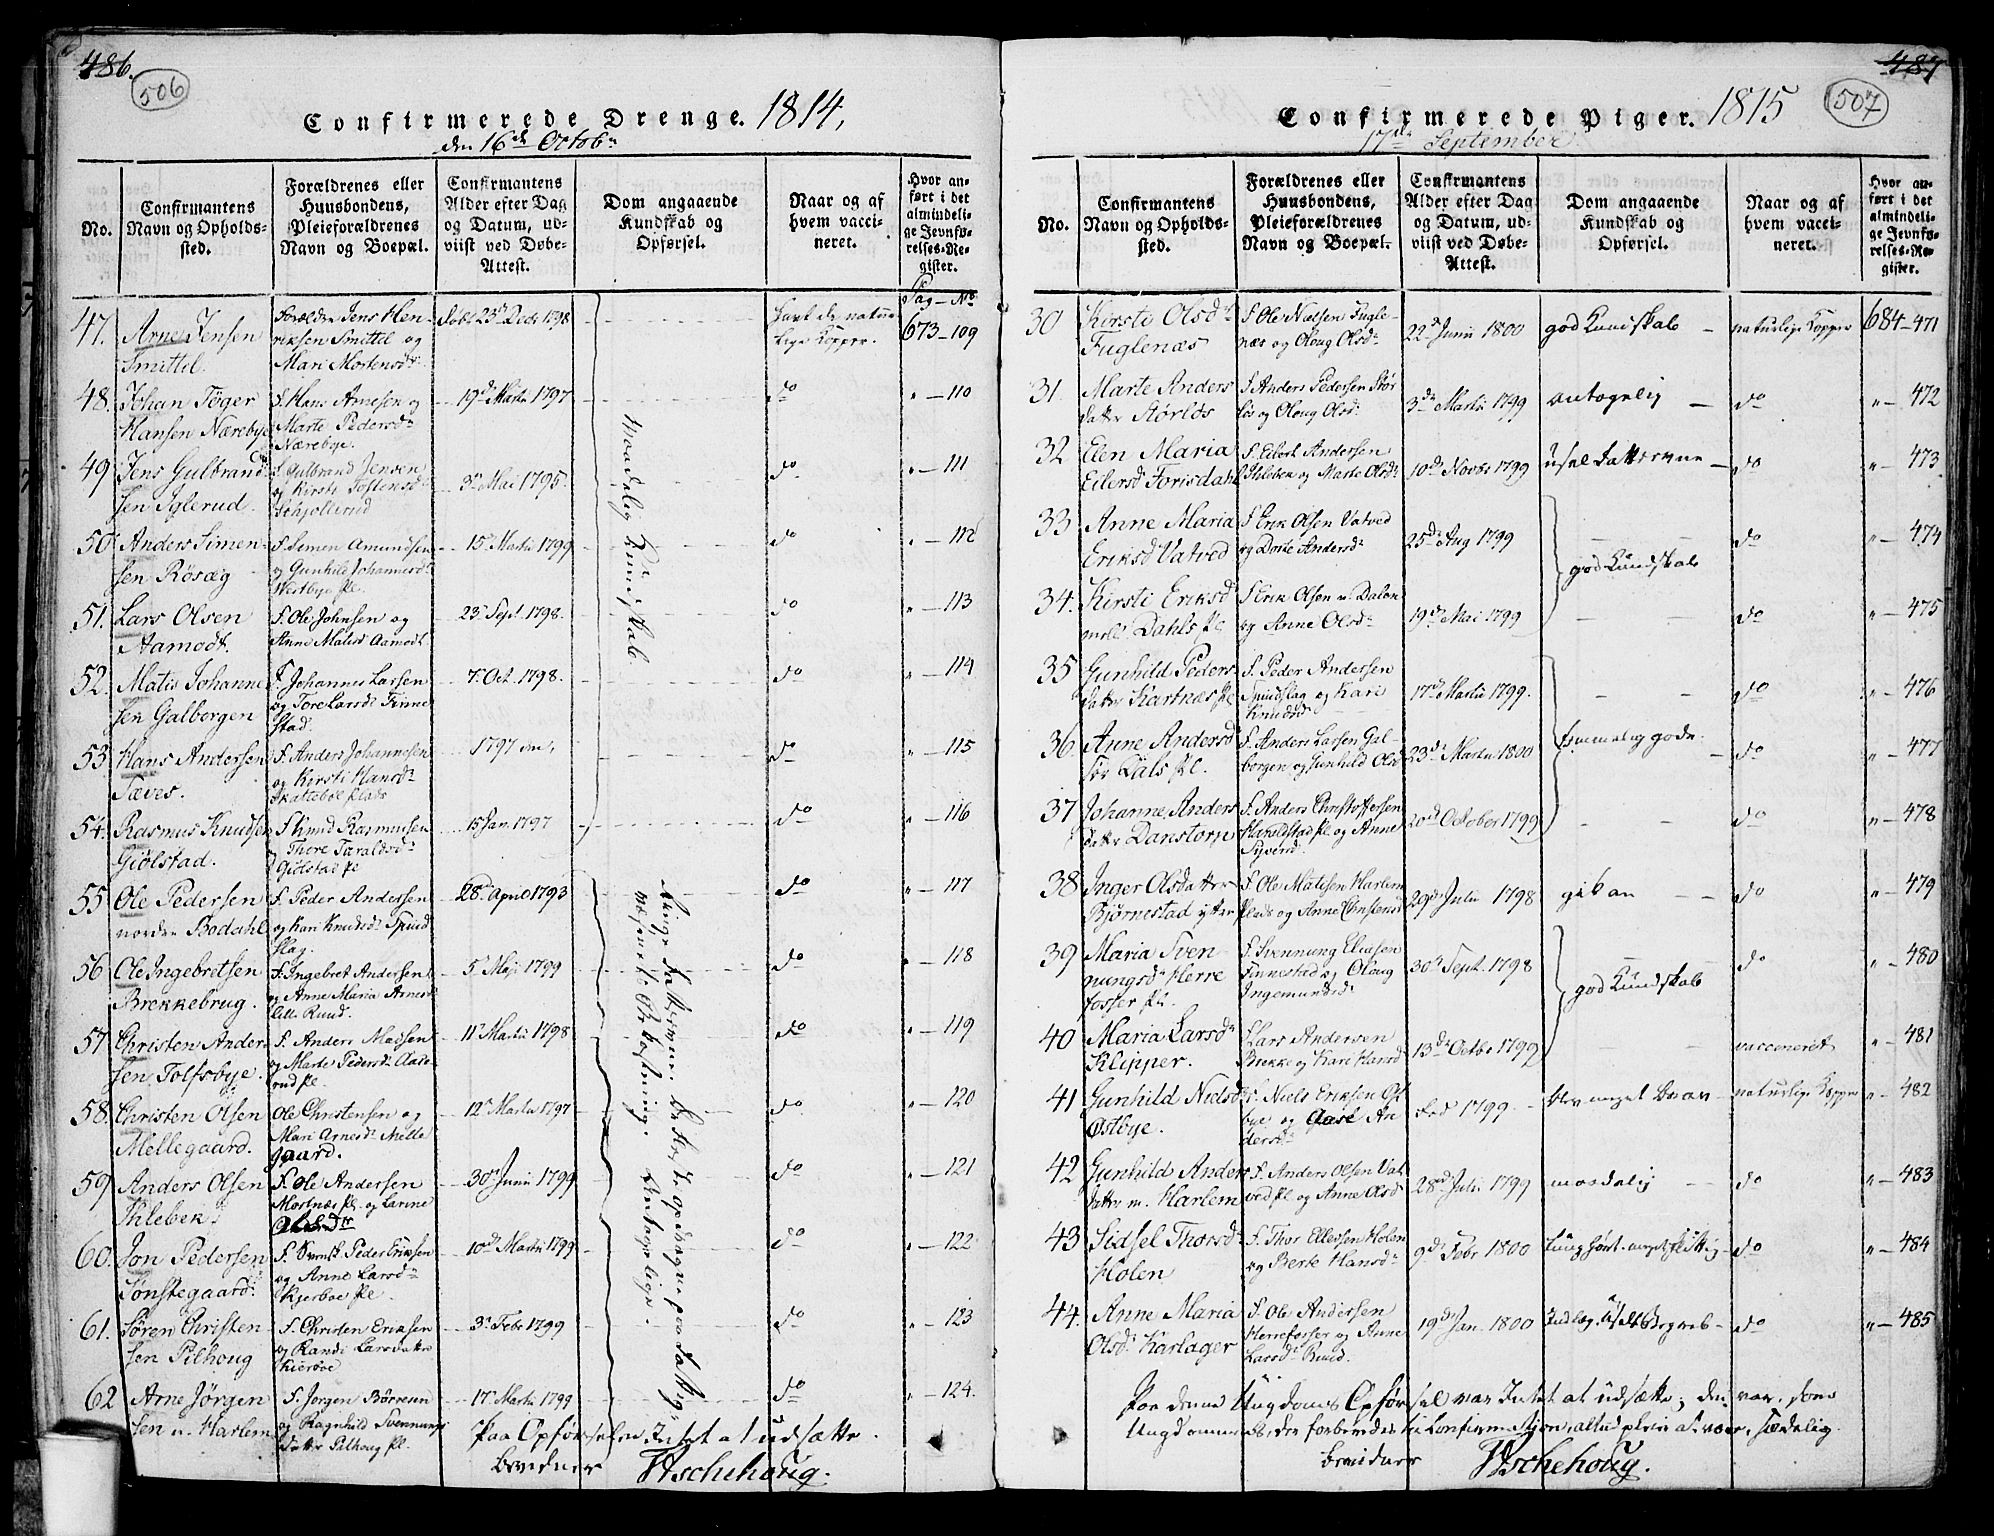 486.
506
Confirmerede Drenge. 1814,
den 16de Octobr
No.
Confirmantens
Navn og Opholds-
sted.
Forældrenes eller
Huusbondens,
Pleieforældrenes
Navn og Boepæl.
Confirmantens
Alder efter Dag
og Datum, ud-
viist ved Døbe-
Attest.
Dom angaaende
Kundskab og
Opførsel.
Naar og af
hvem vacci-
neret.
Hvor an-
ført i det
almindeli-
ge Jevnfø-
relses-Re-
gister.
Pag - No
47. Arne Jensen
Smittil.
Forældre Jens Hen-
riksen Smittil og
Mari Mortensdr
Døbt 23d Decbr 1798
havt de natur-
lige Kopper.
673-109
48. Johan Føger
Hansen Nærebye
F. Hans Arnesen og
Marte Pedersdr
Nærebye.
19d Martii 1797
do
" - 110
49 Jens Gulbrand-
sen Iglerud.
F. Gulbrand Jensen
og Kirsti Tostensdr
Schjollerud
3d Mai 1795.
do
" - 111
50 Anders Simen-
sen Røsæg
F. Simen Amundsen
og Gunhild Johannesdr
Westbye Pl.
15d Martii 1799
do
" - 112
51. Lars Olsen
Aamodt.
F. Ole Johnsen og
Anne Matisd Aamodt
23d Sept. 1798.
do
" - 113
52. Matis Johanne-
sen Galborgen
F. Johannes Larsen
og Tore Larsd Finne-
stad.
7d Oct. 1798.
do
" - 114
53 Hans Andersen
Tæves.
F. Anders Johannesen
og Kirsti Hansdr
Skatteboe Plads
1797
do
" - 115
54. Rasmus Knudsen
Giølstad.
F. Knud Rasmusen
Thore Taraldsdr
Giølstad Pl
15 Jan. 1797
do
" - 116
maadelig Kundskab
55 Ole Pedersen
nordre Bodahl
F. Peder Andersen
og Kari Knudsdr Spind-
slag.
28d April 1793
do
" - 117
56 Ole Ingebretsen
Brekkebrug.
F. Ingebret Andersen
og Anne Maria Arnesdr
lille Ruud.
5d Maji 1799
do
" - 118
57 Christen Ander-
sen Tolfsbye.
F. Anders Madsen
og Marte Pedersdr
rud Pl.
11d Martii 1798
do
" - 119
58. Christen Olsen
Mellegaard.
Ole Christensen og
Mari Arnesdr Melle-
gaard.
12d Martii 1797
do
" - 120
59 Anders Olsen
Ihlebek
F. Ole Andersen
Mostnæs Pl. og Larine
Olsdr
30d Junii 1799
do
" - 121
60. Jon Pedersen
Sønstegaard.
F. Peder Eriksen
og Anne Larsdr
Kjerboe Pl.
10d Martii 1799
do
" - 122
61. Søren Christen-
sen Pilhoug
F. Christen Eriksen
og Randi Larsdatter
Kierboe
3d Febr 1799
do
" - 123
62 Arne Jørgen-
sen n. Harlem
F. Jørgen Børresen
og Ragnhild Svennungs-
datter Pilhoug Pl.
17d Martii 1799
do
" - 124.
Paa Opførselen Intet at udsætte.
bevidner HAschehoug.
487
507
Confirmerede Piger. 1815
17de September
No.
Confirmantens
Navn og Opholds-
sted.
Forældrenes eller
Huusbondens,
Pleieforældrenes
Navn og Boepæl.
Confirmantens
Alder efter Dag
og Datum, ud-
viist ved Døbe-
Attest.
Dom angaaende
Kundskab og
Opførsel.
Naar og af
hvem vacci-
neret.
Hvor an-
ført i det
almindeli-
ge Jevnfø-
relses-Re-
gister.
30 Kirsti Olsdr
Fuglenæs
F. Ole Nielsen Fugle-
næs og Oloug Olsdr
22d Junii 1800
god Kundskab
naturlige Kopper
684-471
31. Marte Anders-
datter Størlds
F. Anders Pedersen Stør-
lds og Oloug Olsdr
3d Martii 1799
antagelig
do
" - 472
32 Elen Maria
Eilersd Torisdahl
F. Eilert Andersen
Ihlebek og Marte Olsdr
10d Novbr 1799
usel Fatteevne
do
" - 473
33 Anne Maria
Eriksd Vatved
F. Erik Olsen Vatved
og Dorte Andersdr
25d Aug 1799
do
" - 474
god Kundskab
34. Kirsti Eriksdr
Dahls Pl
F. Erik Olsen
og Anne Olsdr
19d Mai 1799
do
" - 475
35 Gunhild Peders-
datter Kartnæs Pl
F. Peder Andersen
Spindslag og Kari
Knudsdr
17d Martii 1799.
do
" - 476
36. Anne Andersd
Dals Pl.
F. Anders Larsen Gal-
borgen og Gunhild Olsd
23d Martii 1800
temmelig gode.
do
" - 477
37 Johanne Anders-
datter Danstorp
F. Anders Christoffersen
Haraldstad Pl og Anne
Syversd.
20d October 1799
do
" - 478
38 Inger Olsdatter
Bjørnestad ytter
F. Ole Matisen Harlem
Plads og Anne Christensd
29d Julii 1798
gik an
do
" - 479
39 Maria Sven-
nungsd Herre-
fosser Pl.
F. Svennung Eliasen
Finnestad og Oloug
Ingemundsd
30d Sept. 1798
god Kundskab
do
" - 480
40 Maria Larsdr
Klipper.
F. Lars Andersen
Brekke og Kari Hansd
13d Octbr 1799
vaccineret
" - 481
41 Gunhild Nielsd
Østbye.
F. Niels Eriksen Øst-
bye og Aase An-
dersdr
Fød 1799.
blev meget brav
naturlige Kopper
" - 482
42 Gunhild Anders-
datter n. Harlem
F. Anders Olsen Vat-
ved Pl og Anne Olsd
28d Julii 1799
maadelig
do
" - 483
43 Sidsel Thorsd
Holen
F. Thor Ellevsen Holen
og Berte Hansdr
9d Febr 1800
tunghørt. meget flittig
do
" - 484
44. Anne Maria
Olsdr Karlager
F. Ole Andersen
Herrefosser og Anne
Larsdr Ruud.
19d Jan. 1800
do
" - 485
Paa denne Ungdoms Opførsel var Intet at udsætte; den var, som
Ungdommen, der forberedes til Confirmation, altid pleier at være, sædelig.
bevidner HAschehoug.